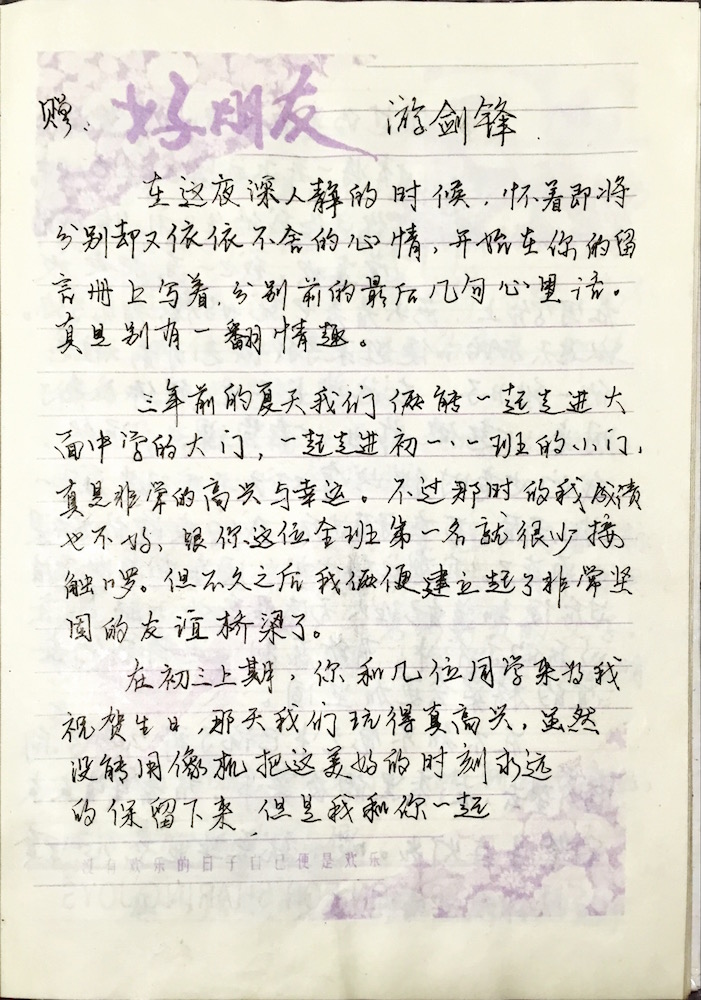 赠: 好朋友 游剑锋
在这夜深人静的时候,怀着即将
分别却又依依不舍的心情,开始在你的留
言册上写着,分别前的最后几句心里话。
真是别有一翻情趣。
三年前的夏天我们俩能一起走进大
面中学的大门,一起走进初一、一班的小门,
真是非常的高兴与幸运。不过那时的我成绩
也不好、跟你这位全班第一名就很少接
触啰。但不久之后我俩便建立起了非常坚
固的友谊桥梁了。
在初三上期,你和几位同学来为我
祝贺生日,那天我们玩得真高兴,虽然
没能用像机把这美好的时刻永远
的保留下来,但是我和你一起
没有欢乐的日子自己便是欢乐